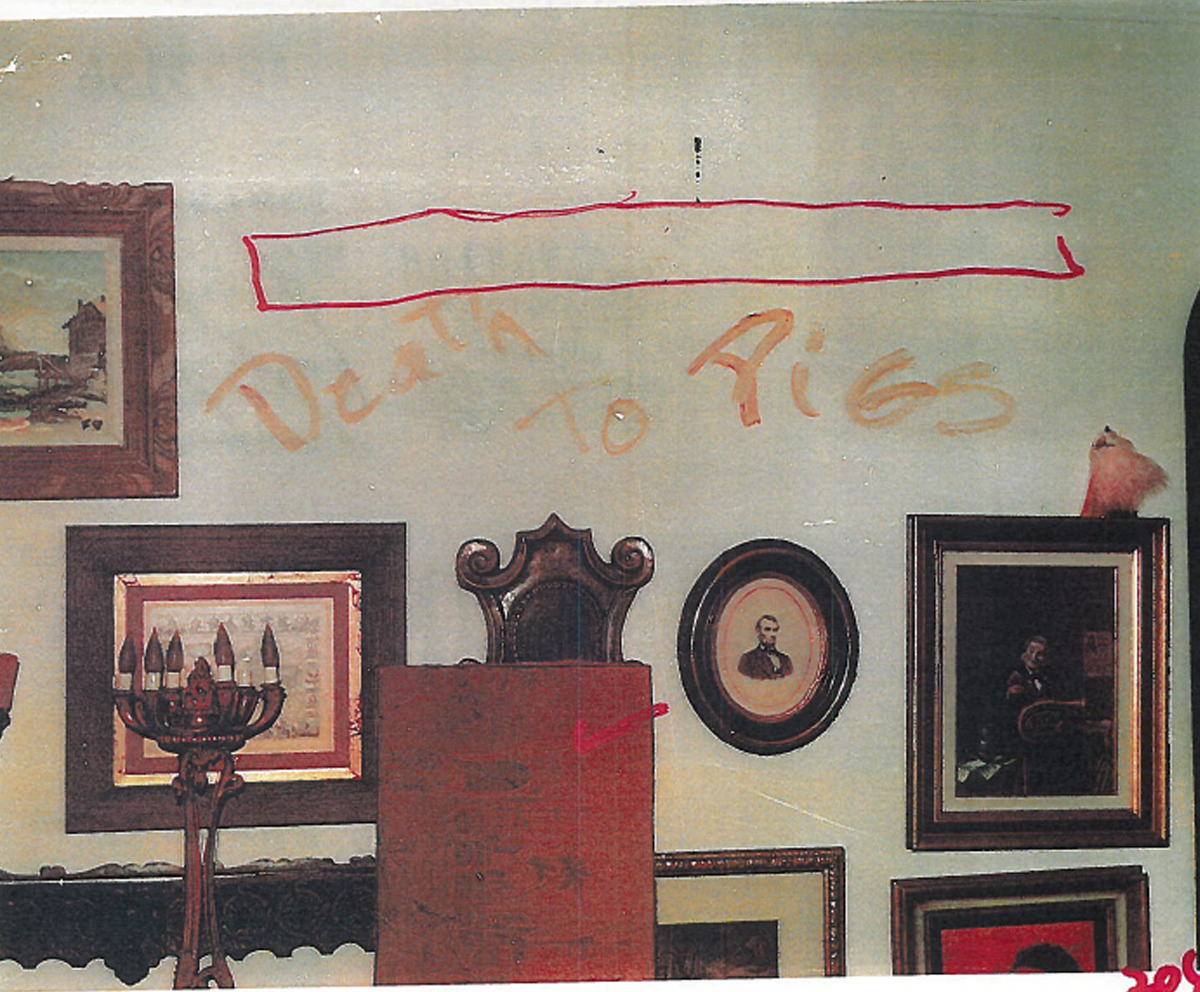 Death
To PiGS